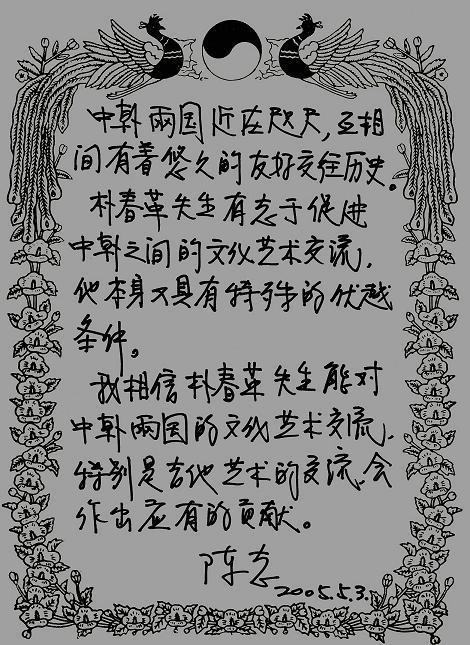 中韩两国近在咫尺,互相
间有着悠久的友好交往历史。
朴春革先生有志于促进
中韩之间的文化艺术交流,
他本身又具有特殊的优越
条件。
我相信朴春革先生能对
中韩两国的文化艺术交流,
特别是吉他艺术的交流,会
作出应有的贡献。
陈志
2005.5.3.